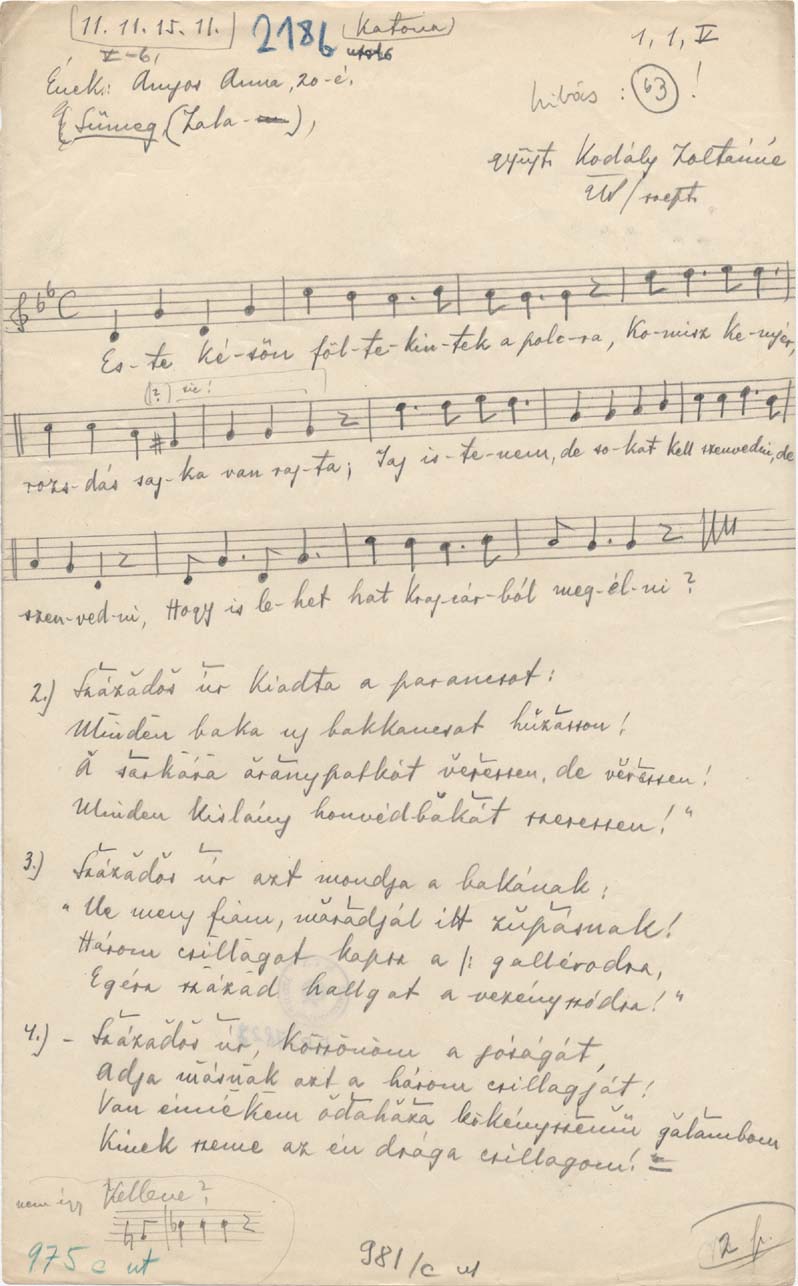 (11. 11. 15. 11.) 2186 (Katona) 1, 1, V
V-6,
Ének: Anyos Anna, 20-é. hibás: 63!
Sümeg (Zala- ),
gyűjt. Kodály Zoltánné
/ szept.
Es-te ké-sőn föl-te-kin-tek a polc-ra, Ko-misz ke-nyér,
(?) sic!
rozs-dás saj-ka van raj-ta; Jaj is-te-nem, de so-kat kell szenvedni, de
szen-ved-ni, Hogy is le-het hat kraj-cár-ból meg-él-ni?
2.) Százádos úr kiadta a parancsot:
Minden baka uj bakkancsot húzasson!
A sarkára aranypatkót veressen, de veressen!
Minden kislány honvédbakát szeressen!"
3.) Százados úr azt mondja a bakának:
"Ne meny fiam, maradjál itt zupásnak!
Három csillagot kapsz a /: gallérodra,
Egész század hallgat a vezényszódra!"
4.) - Százados úr, köszönöm a jóságát,
Adja másnak azt a három csillagját!
Van énnékem odahaza kökényszemű galambom
Kinek szeme az én drága csillagom! =
nem így Kellene?
975 c ut 981/c ut 2 f.